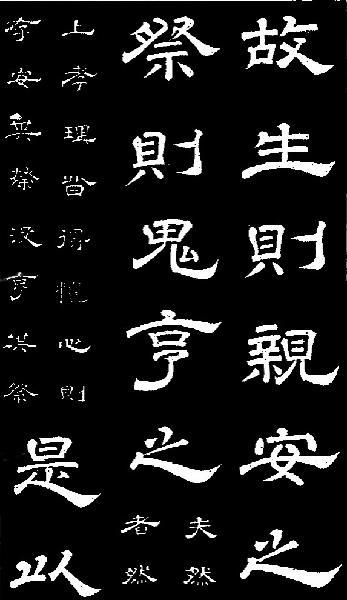 故生則親安之
祭則鬼亨之
夫然
者然
上孝理皆得懽心則
存安其榮没亨其祭
是以